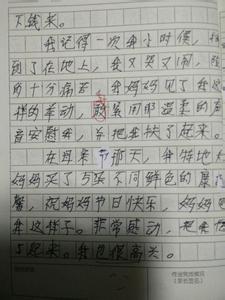 下钱来。
我记得一次我小时候,
到了在地上,我又哭又闹,
的十分痛苦,我妈妈见了我这
样的举动,就采用那温柔的声
音安慰我,并把我扶了起来。
在母亲节那天,我特地
妈妈买了5朵不同鲜色的康
馨,祝妈妈节日快乐,妈妈
我这样子。非常感动,把我
了起来。我也很高兴。
作业完成情况
(家长签名)